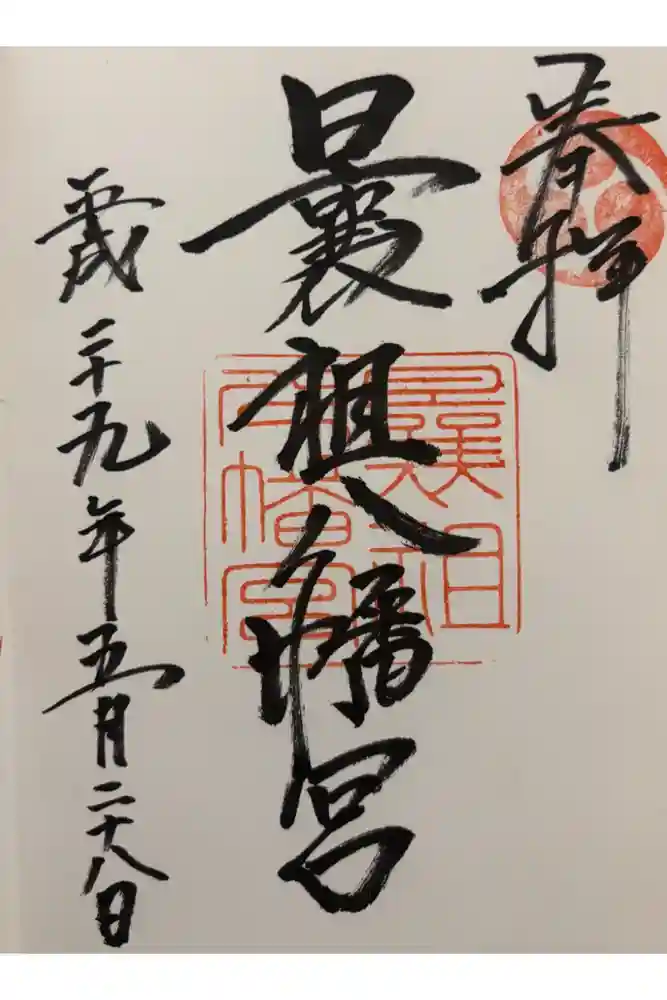 奉拝
曩祖八幡宮
平成二十九年五月二十八日
曩祖
八幡宮